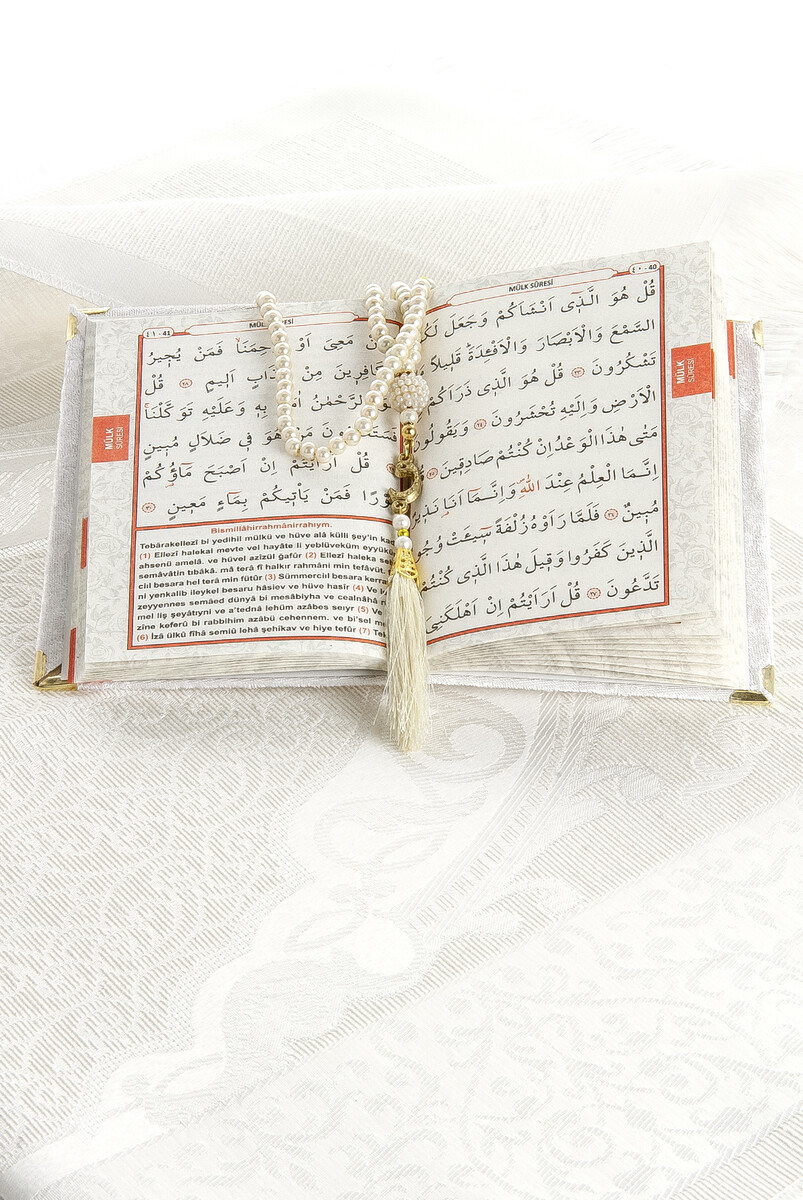 ٤٠ - 40
MÜLK SÛRESİ
قُلْ هُوَ الَّذ۪ٓي اَنْشَاَكُمْ وَجَعَلَ
السَّمْعَ وَالْاَبْصَارَ وَالْاَفْئِدَةَۜ قَل۪يلاً
تَشْكُرُونَ ﴿٢٣﴾ قُلْ هُوَ الَّذ۪ي ذَرَاَكُمْ
الْاَرْضِ وَاِلَيْهِ تُحْشَرُونَ ﴿٢٤﴾ وَيَقُولُونَ
مَتٰى هٰذَا الْوَعْدُ اِنْ كُنْتُمْ صَادِق۪ينَ
اِنَّمَا الْعِلْمُ عِنْدَ اللّٰهِ وَاِنَّـمَٓا اَنَا۬ نَذ۪يرٌ
مُب۪ينٌ ﴿٢٦﴾ فَلَمَّا رَاَوْهُ زُلْفَةً س۪ٓيـَٔتْ
الَّذ۪ينَ كَفَرُوا وَق۪يلَ هٰذَا الَّذ۪ي كُنْتُمْ
تَدَّعُونَ ﴿٢٧﴾ قُلْ اَرَاَيْتُمْ اِنْ اَهْلَكَنِيَ
MÜLK
SÛRESİ
٤١ - 41
مَعِيَ اَوْ فَمَنْ يُج۪يرُ
مِنْ اَل۪يمٍ ﴿٢٨﴾ قُلْ
الرَّحْمٰنُ بِه۪ وَعَلَيْهِ تَوَكَّلْنَاۚ
هُوَ ف۪ي ضَلَالٍ مُب۪ينٍ
قُلْ اَرَاَيْتُمْ اِنْ اَصْبَحَ مَٓاؤُ۬كُمْ
فَمَنْ يَأْت۪يكُمْ بِمَٓاءٍ مَع۪ينٍ ﴿٣٠﴾
MÜLK
SÛRESİ
Bismillâhirrahmânirrahıym.
Tebârakellezî bi yedihil mülkü ve hüve alâ külli şey'in
(1) Ellezî halekal mevte vel hayâte li yeblüveküm eyyüküm
ahsenü amelâ. ve hüvel azîzül ğafûr (2) Ellezî haleka
semâvâtin tıbâkâ. mâ terâ fî halkır rahmâni min tefâvüt.
cııl besara hel terâ min fütûr (3) Sümmercııl besara
ni yenkalib ileykel besaru hâsiev ve hüve hasîr (4) Ve
zeyyennes semâed dünyâ bi mesâbiyha ve cealnâhâ
mel liş şeyâtıyni ve a'tednâ lehüm azâbes seıyr (5) Ve
zîne keferû bi rabbihim azâbü cehennem. ve bi'sel
(6) İzâ ülkû fîhâ semiû lehâ şehîkav ve hiye tefûr (7)